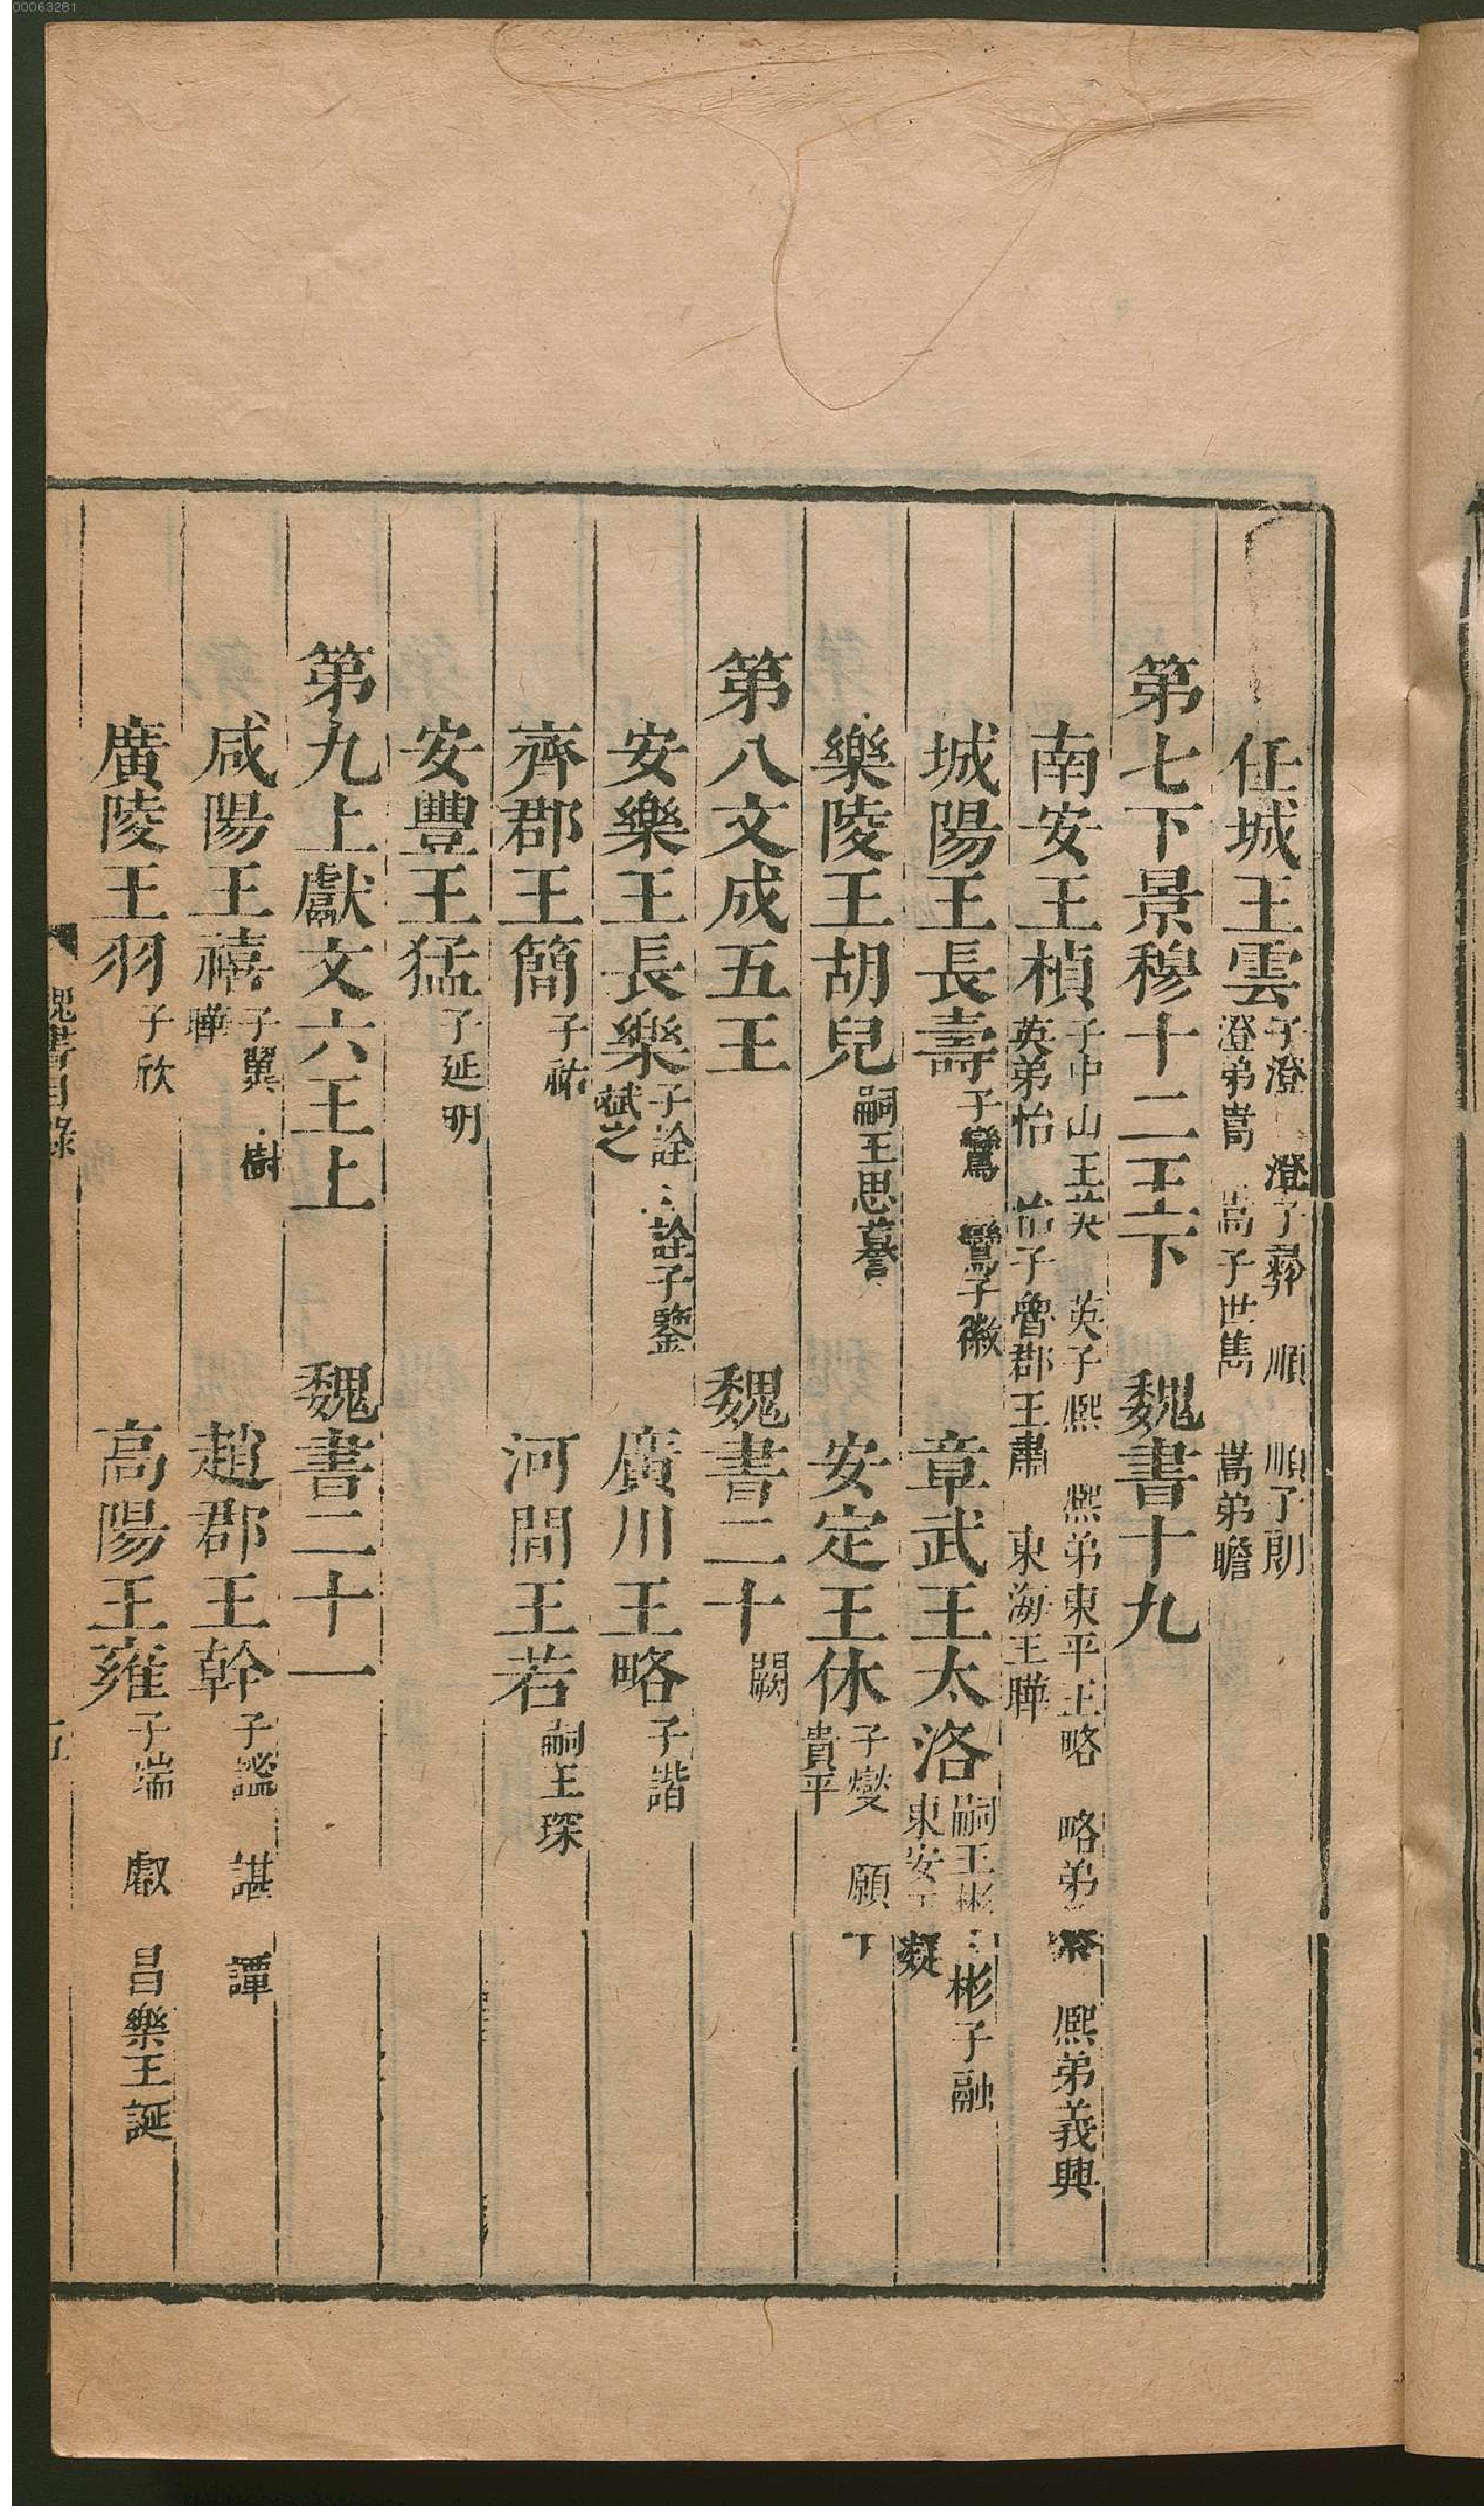 00063281
任城王雲 子澄 澄子彞 順 順子則 澄弟嵩 嵩子世雋 嵩弟瞻
第七下景穆十二王下 魏書十九
南安王楨 子中山王英 英子熙 熙弟東平王略 略弟 熙弟義興 英弟怡 怡子魯郡王肅 東海王曄
城陽王長壽 子鸞 鸞子徽 章武王太洛 嗣王彬 彬子融 東安王凝
樂陵王胡兒 嗣王思譽 安定王休 子燮 願 貴平
第八文成五王 魏書二十 闕
安樂王長樂 子詮 詮子鑒 斌之 廣川王略 子諧
齊郡王簡 子祐 河間王若 嗣王琛
安豐王猛 子延明
第九上獻文六王上 魏書二十一
咸陽王禧 子翼 樹 曄 趙郡王幹 子謐 諶 譚
廣陵王羽 子欣 高陽王雍 子端 叡 昌樂王誕
魏書目錄